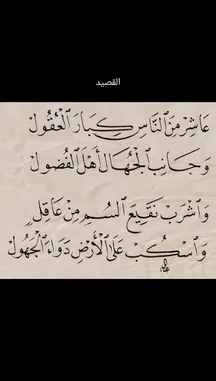 القصيد
عَاشِرْ مِنَ النَّاسِ كِبَارَ الْعُقُولْ
وَجَانِبِ الْجُهَّالَ أَهْلَ الْفُضُولْ
وَاشْرَبْ نَقِيعَ السُّمِّ مِنْ عَاقِلٍ
وَاسْكُبْ عَلَى الْأَرْضِ دَوَاءَ الْجَهُولْ